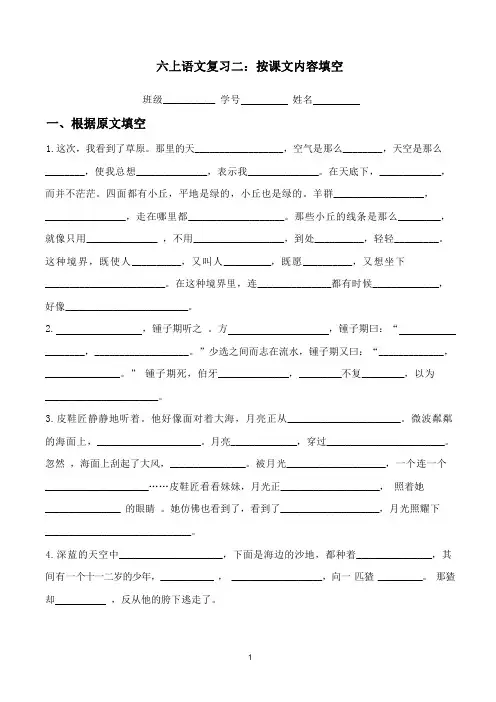 六上语文复习二：按课文内容填空
班级__________ 学号_________ 姓名_________
一、根据原文填空
1.这次，我看到了草原。那里的天_________________，空气是那么________，天空是那么
________，使我总想______________，表示我______________。在天底下，____________，
而并不茫茫。四面都有小丘，平地是绿的，小丘也是绿的。羊群__________________，
________________，走在哪里都___________________。那些小丘的线条是那么________，
就像只用______________ ，不用__________________，到处__________，轻轻_________。
这种境界，既使人__________，又叫人_________，既愿__________，又想坐下
________________________。在这种境界里，连_______________都有时候_____________，
好像________________________。
2. _________________，锺子期听之 。方____________________，锺子期曰：“___________
________，___________________。”少选之间而志在流水，锺子期又曰：“_____________，
_______________。” 锺子期死，伯牙______________，________不复________，以为
______________________。
3.皮鞋匠静静地听着。他好像面对着大海，月亮正从______________________。微波粼粼
的海面上，_____________________。月亮_____________，穿过_______________________。
忽然 ，海面上刮起了大风，_______________。被月光____________________，一个连一个
____________________……皮鞋匠看看妹妹，月光正____________________， 照着她
_______________ 的眼睛 。她仿佛也看到了，看到了____________________，月光照耀下
_____________________________。
4.深蓝的天空中_____________________，下面是海边的沙地，都种着_______________，其
间有一个十一二岁的少年，___________ ， __________________，向一 匹猹 _________。 那猹
却__________ ，反从他的胯下逃走了。
1